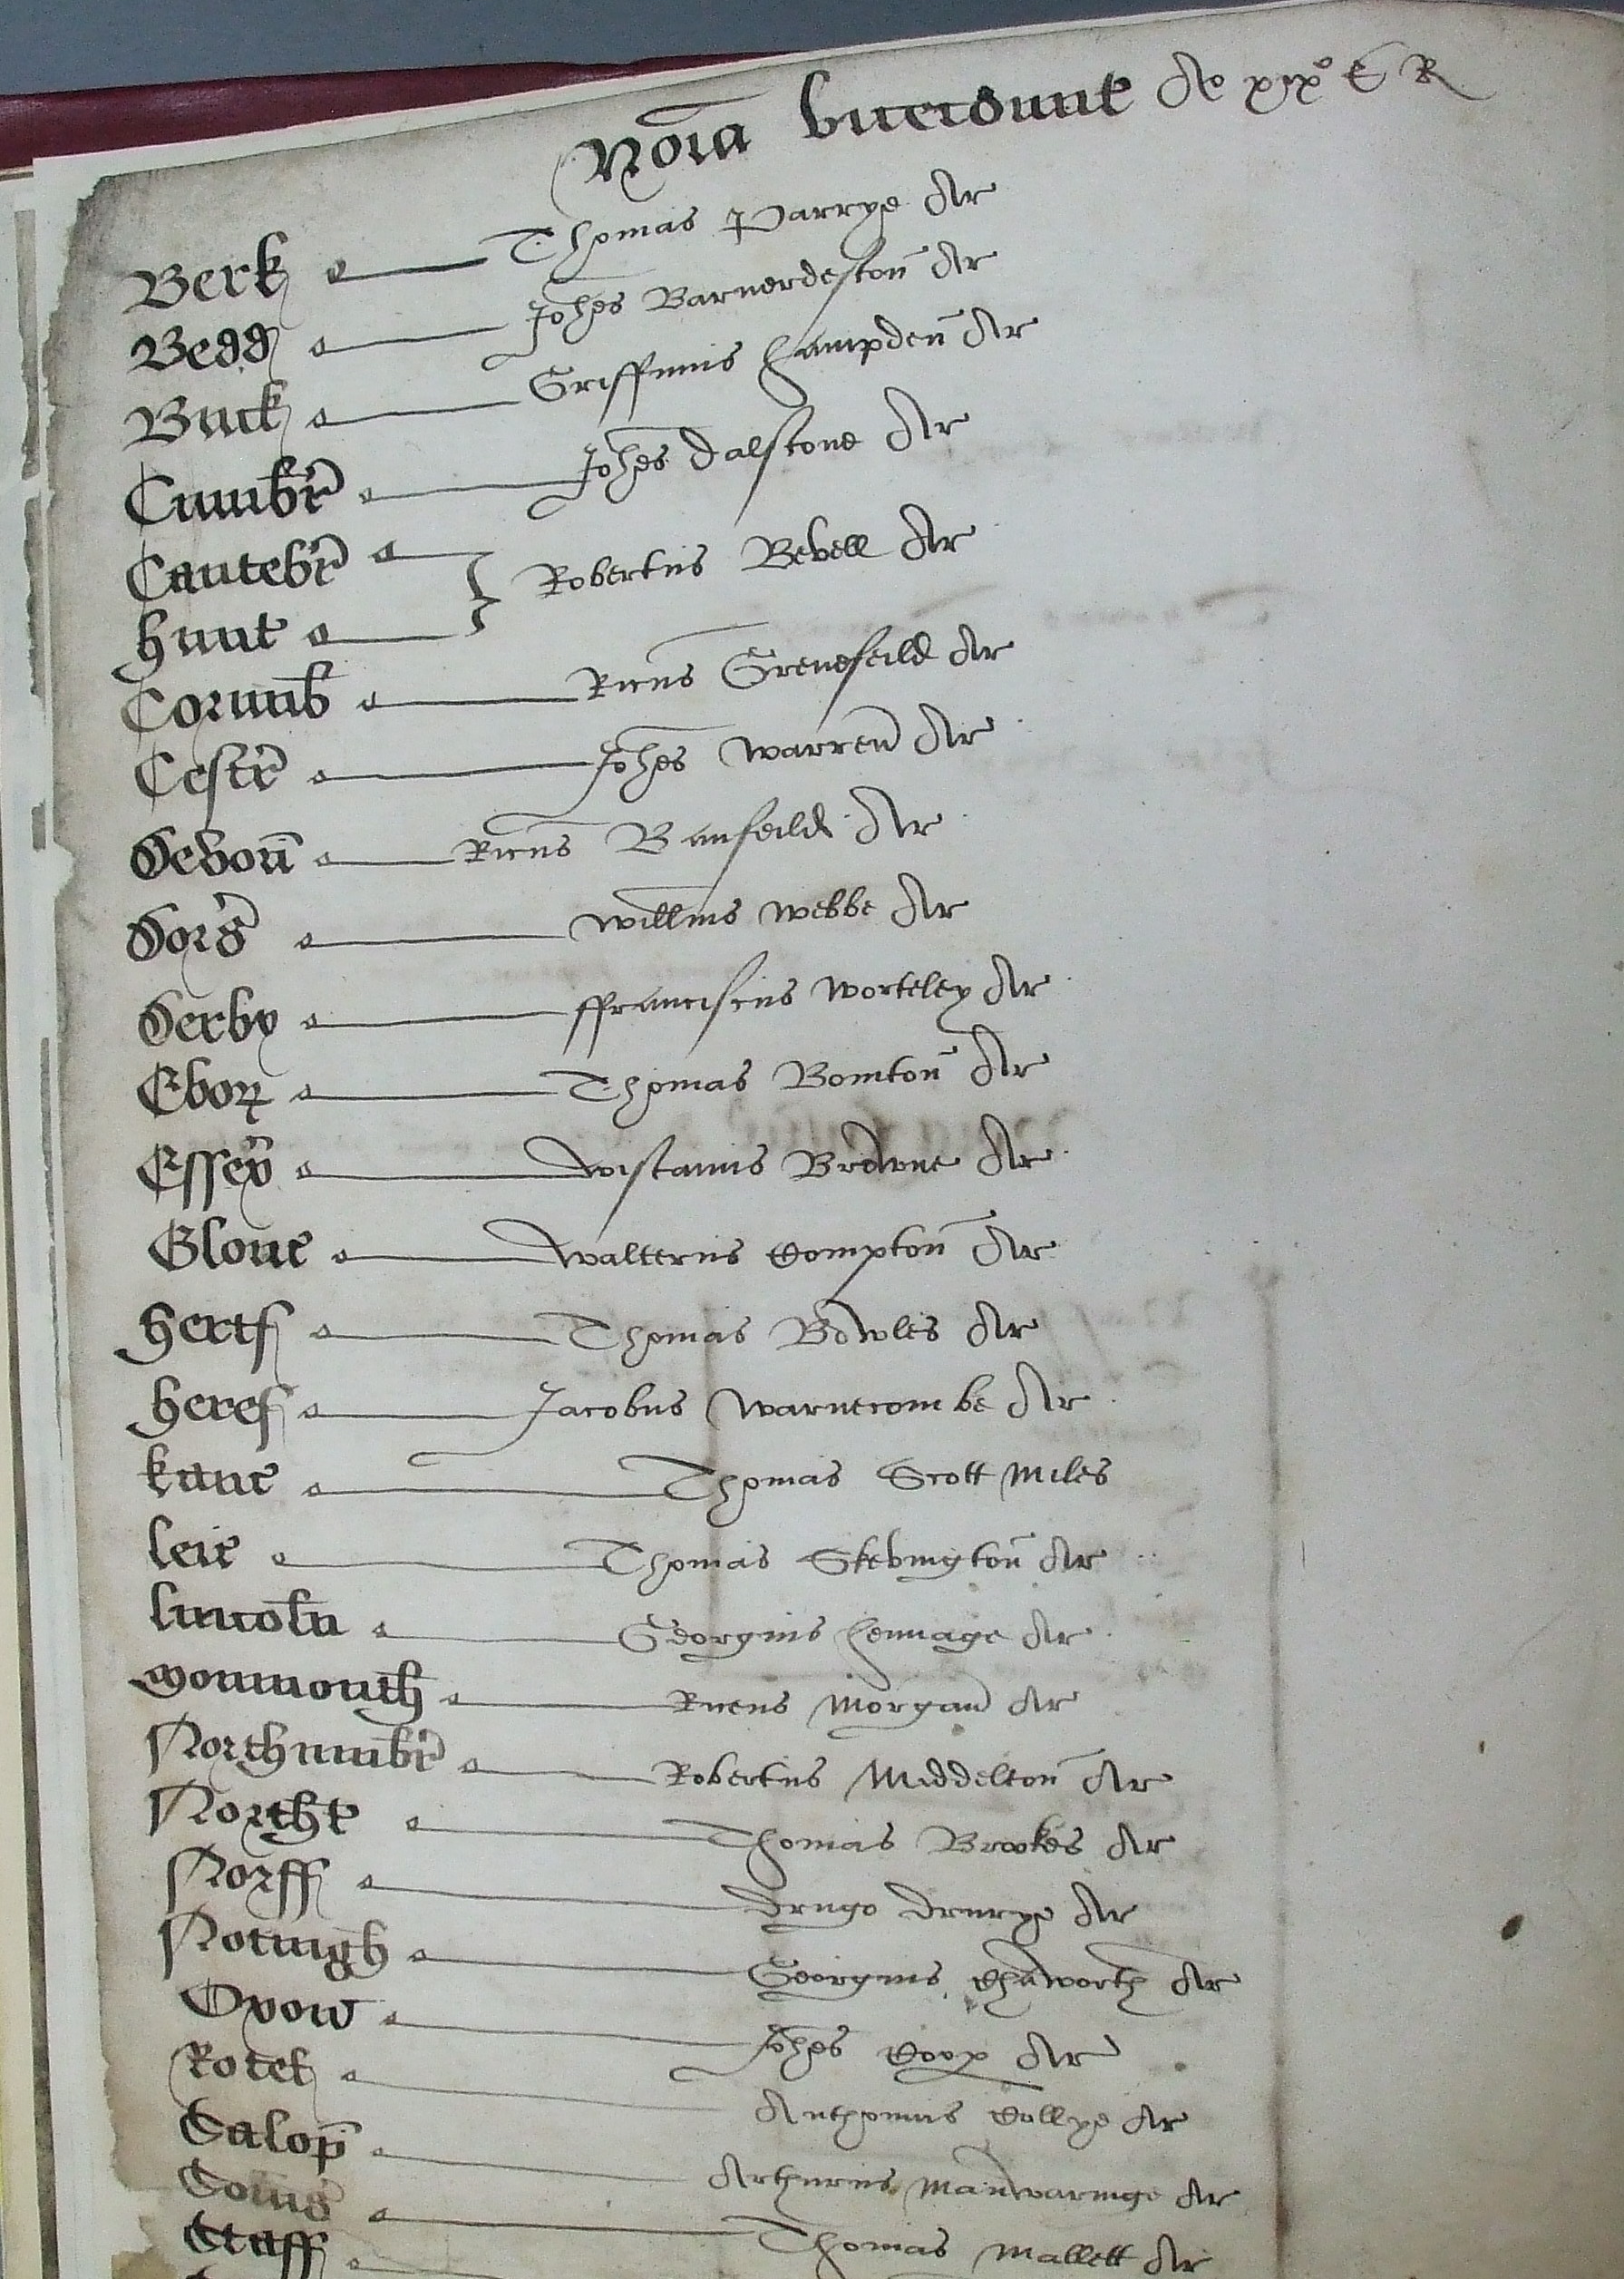 Noīa vicecomit Ao xixo E R
Berk Thomas Parrye Ar
Bedd Johes Barnerdeston Ar
Buck Griffinus Hampden Ar
Cumbr Johes Dalstone Ar
Cantebr
Hunt Robertus Bevell Ar
Cornub Ricus Grenefeild Ar
Cestr Johes Warren Ar
Devon Ricus Banfeild Ar
Dors Willmus Webbe Ar
Derby ffranciscus Worteley Ar
Ebor Thomas Bointon Ar
Essex Wistanus Browne Ar
Glouc Walterus Compton Ar
Hertf Thomas Bowles Ar
Heref Jacobus Warnecombe Ar
Kanc Thomas Scott Miles
Leic Thomas Skevington Ar
Lincoln Georgius Hennage Ar
Monmouth Ricus Morgan Ar
Northumbr Robertus Middelton Ar
Northt Thomas Brookes Ar
Norff Drugo Drurye Ar
Notingh Georgius Chaworth Ar
Oxon Johes Coop Ar
Rotel Anthonius Collye Ar
Salop Arthurus Mainwaringe Ar
Soms Thomas Mallett Ar
Staff